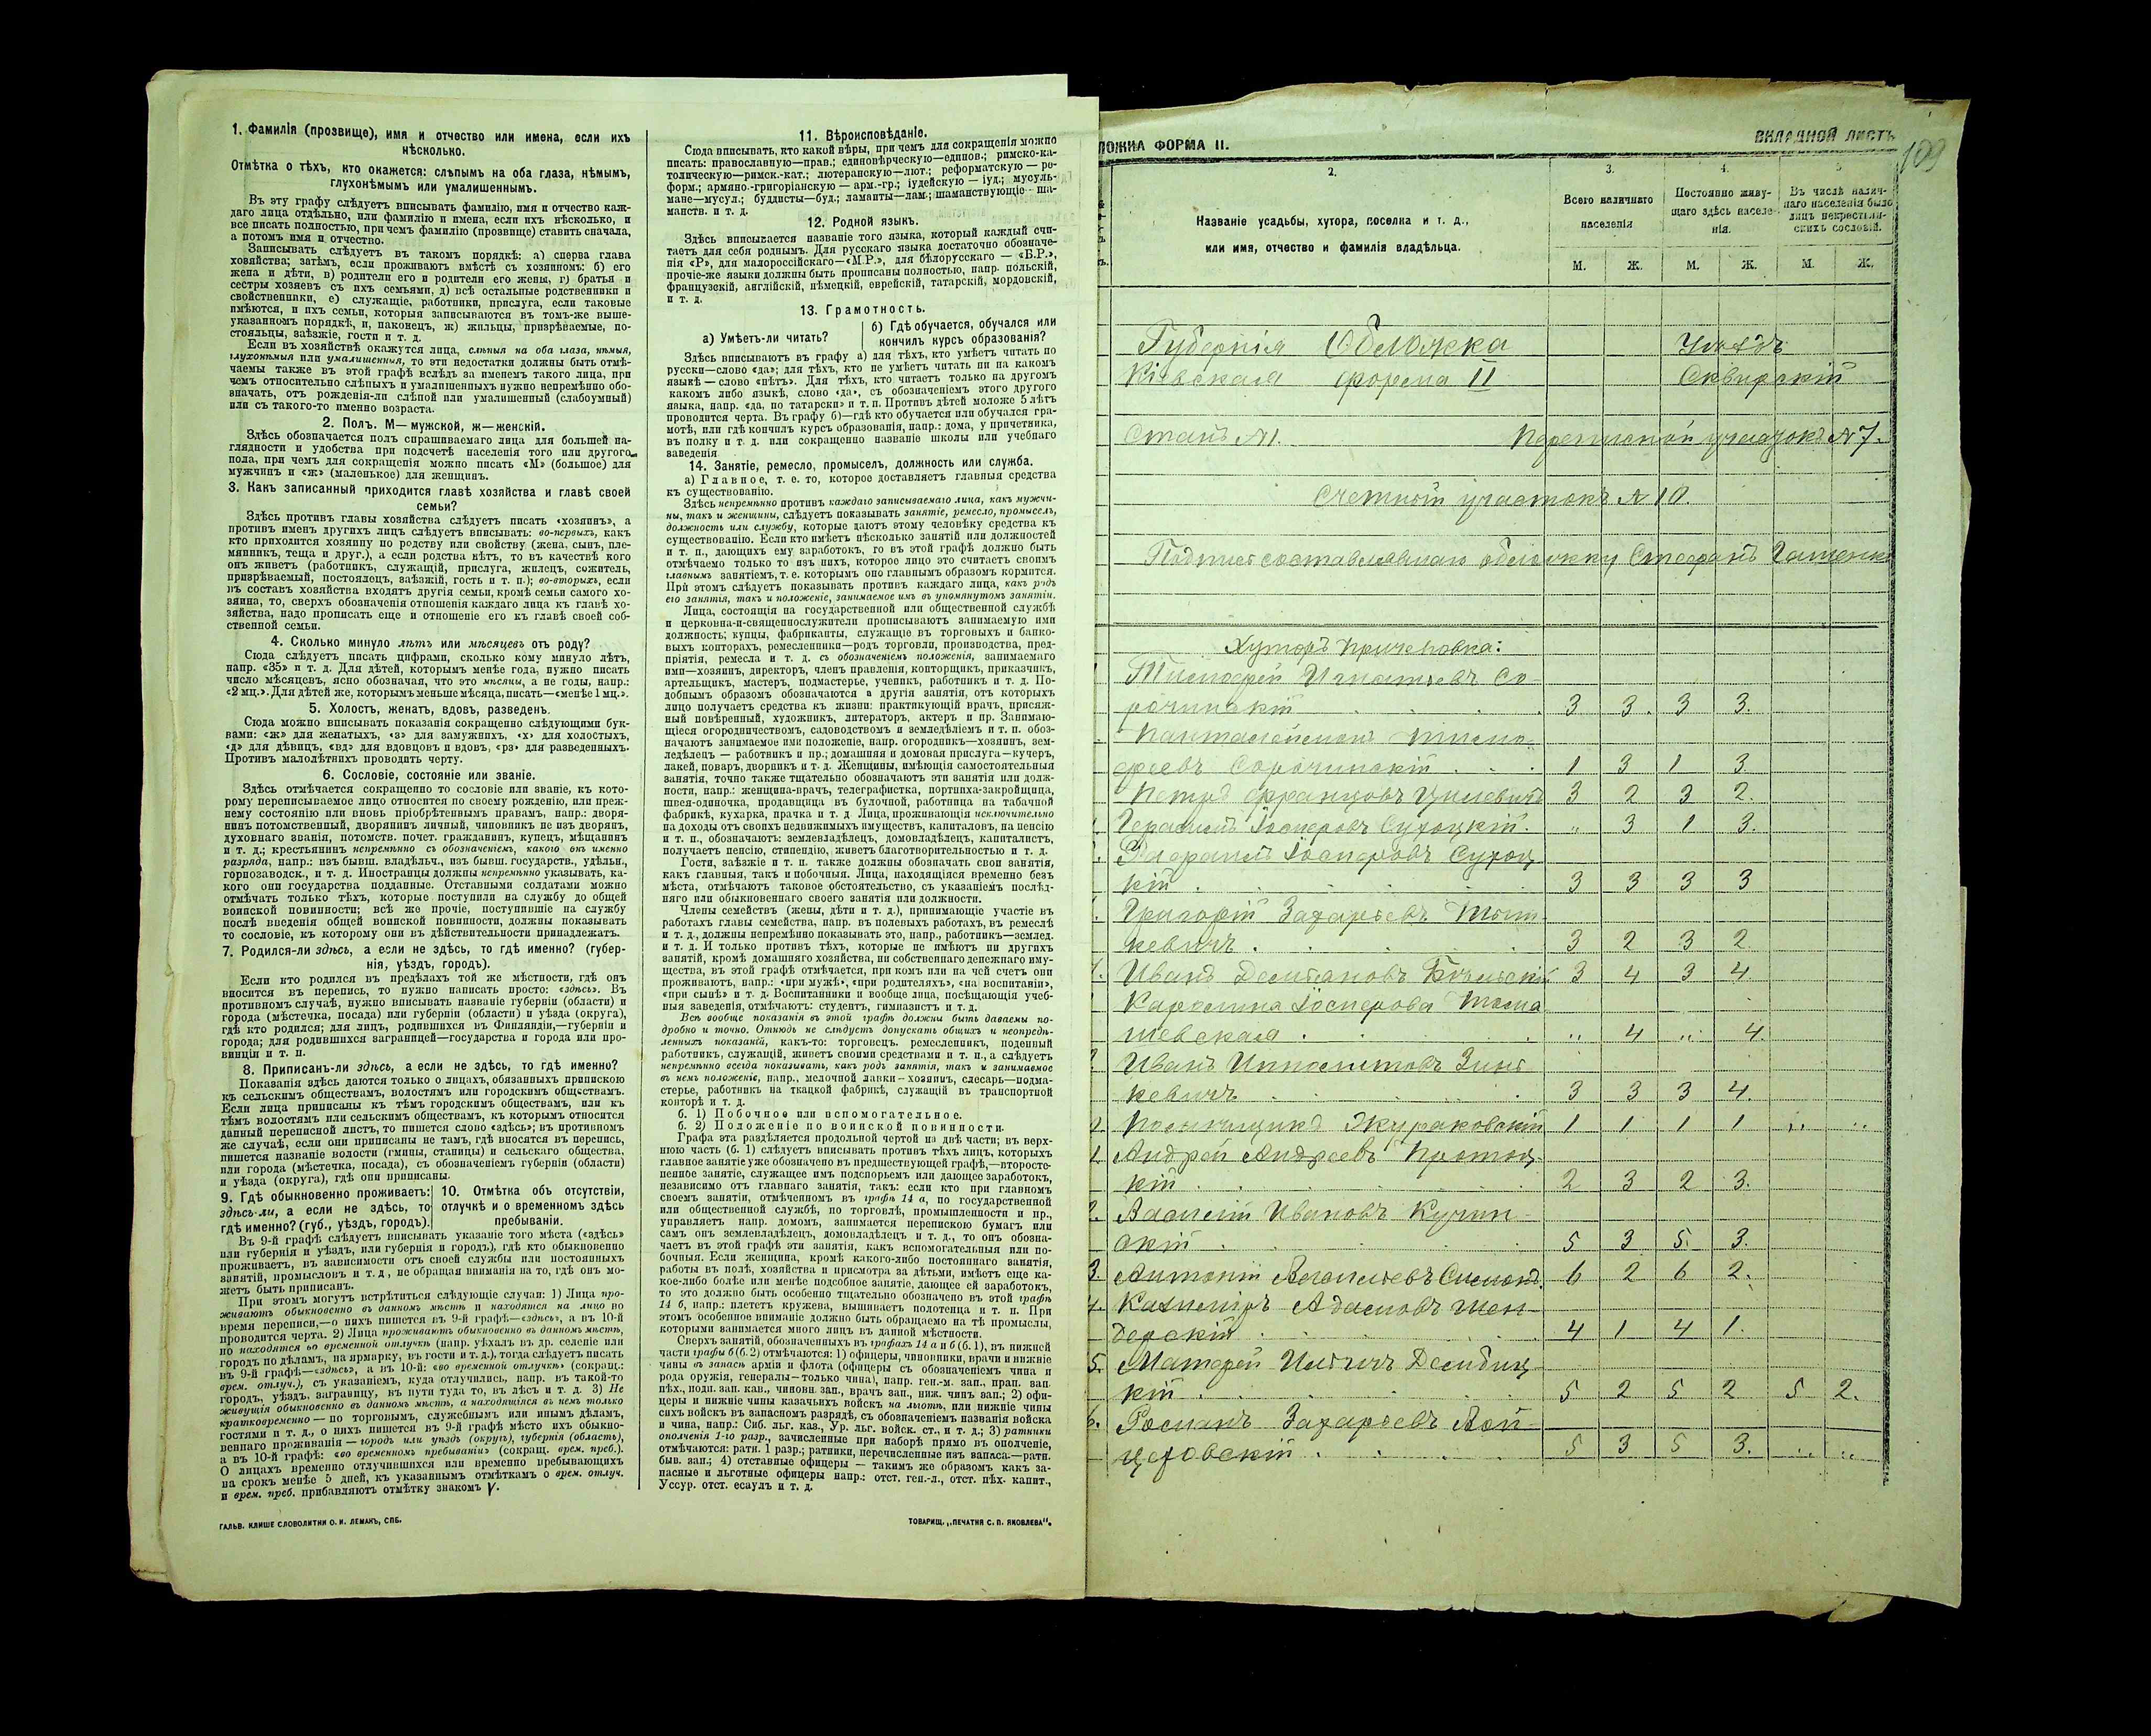 1. Фамилія (прозвище), имя и отчество или имена, если ихъ
нѣсколько.
Отмѣтка о тѣхъ, кто окажется: слѣпымъ на оба глаза, нѣмымъ,
глухонѣмымъ или умалишеннымъ.
Въ эту графу слѣдуетъ вписывать фамилію, имя и отчество каж-
даго лица отдѣльно, или фамилію и имена, если ихъ нѣсколько, и
все писать полностью, при чемъ фамилію (прозвище) ставить сначала,
а потомъ имя и отчество.
Записывать слѣдуетъ въ такомъ порядкѣ: а) сперва глава
хозяйства; затѣмъ, если проживаютъ вмѣстѣ съ хозяиномъ: б) его
жена и дѣти, в) родители его и родители его жены, г) братья и
сестры хозяевъ съ ихъ семьями, д) всѣ остальные родственники и
свойственники, е) служащіе, работники, прислуга, если таковые
имѣются, и ихъ семьи, которыя записываются въ томъ-же выше-
указанномъ порядкѣ, и, наконецъ, ж) жильцы, призрѣваемые, по-
стояльцы, заѣзжіе, гости и т. д.
Если въ хозяйствѣ окажутся лица, слѣпыя на оба глаза, нѣмыя,
глухонѣмыя или умалишенныя, то эти недостатки должны быть отмѣ-
чаемы также въ этой графѣ вслѣдъ за именемъ такого лица, при
чемъ относительно слѣпыхъ и умалишенныхъ нужно непремѣнно обо-
значать, отъ рожденія-ли слѣпой или умалишенный (слабоумный)
или съ такого-то именно возраста.
2. Полъ. М—мужской, ж—женскій.
Здѣсь обозначается полъ спрашиваемаго лица для большей на-
глядности и удобства при подсчетѣ населенія того или другого
пола, при чемъ для сокращенія можно писать «М» (большое) для
мужчинъ и «ж» (маленькое) для женщинъ.
3. Какъ записанный приходится главѣ хозяйства и главѣ своей
семьи?
Здѣсь противъ главы хозяйства слѣдуетъ писать «хозяинъ», а
противъ именъ другихъ лицъ слѣдуетъ вписывать: во-первыхъ, какъ
кто приходится хозяину по родству или свойству (жена, сынъ, пле-
мянникъ, теща и друг.), а если родства нѣтъ, то въ качествѣ кого
онъ живетъ (работникъ, служащій, прислуга, жилецъ, сожитель,
призрѣваемый, постоялецъ, заѣзжій, гость и т. п.); во-вторыхъ, если
въ составъ хозяйства входятъ другія семьи, кромѣ семьи самого хо-
зяина, то, сверхъ обозначенія отношенія каждаго лица къ главѣ хо-
зяйства, надо прописать еще и отношеніе его къ главѣ своей соб-
ственной семьи.
4. Сколько минуло лѣтъ или мѣсяцевъ отъ роду?
Сюда слѣдуетъ писать цифрами, сколько кому минуло лѣтъ,
напр. «35» и т. д. Для дѣтей, которымъ менѣе года, нужно писать
число мѣсяцевъ, ясно обозначая, что это мѣсяцы, а не годы, напр.:
«2 мц.». Для дѣтей же, которымъ меньше мѣсяца, писать—«менѣе 1 мц.».
5. Холостъ, женатъ, вдовъ, разведенъ.
Сюда можно вписывать показанія сокращенно слѣдующими бук-
вами: «ж» для женатыхъ, «з» для замужнихъ, «х» для холостыхъ,
«д» для дѣвицъ, «вд» для вдовцовъ и вдовъ, «рз» для разведенныхъ.
Противъ малолѣтнихъ проводить черту.
6. Сословіе, состояніе или званіе.
Здѣсь отмѣчается сокращенно то сословіе или званіе, къ кото-
рому переписываемое лицо относится по своему рожденію, или преж-
нему состоянію или вновь пріобрѣтеннымъ правамъ, напр.: дворя-
нинъ потомственный, дворянинъ личный, чиновникъ не изъ дворянъ,
духовнаго званія, потомств. почет. гражданинъ, купецъ, мѣщанинъ
и т. д.; крестьянинъ непремѣнно съ обозначеніемъ, какого онъ именно
разряда, напр.: изъ бывш. владѣльч., изъ бывш. государств., удѣльн.,
горнозаводск., и т. д. Иностранцы должны непремѣнно указывать, ка-
кого они государства подданные. Отставными солдатами можно
отмѣчать только тѣхъ, которые поступили на службу до общей
воинской повинности; всѣ же прочіе, поступившіе на службу
послѣ введенія общей воинской повинности, должны показывать
то сословіе, къ которому они въ дѣйствительности принадлежатъ.
7. Родился-ли здѣсь, а если не здѣсь, то гдѣ именно? (губер-
нія, уѣздъ, городъ).
Если кто родился въ предѣлахъ той же мѣстности, гдѣ онъ
вносится въ перепись, то нужно написать просто: «здѣсь». Въ
противномъ случаѣ, нужно вписывать названіе губерніи (области) и
города (мѣстечка, посада) или губерніи (области) и уѣзда (округа),
гдѣ кто родился; для лицъ, родившихся въ Финляндіи,—губерніи и
города; для родившихся заграницей—государства и города или про-
винціи и т. п.
8. Приписанъ-ли здѣсь, а если не здѣсь, то гдѣ именно?
Показанія здѣсь даются только о лицахъ, обязанныхъ припискою
къ сельскимъ обществамъ, волостямъ или городскимъ обществамъ.
Если лица приписаны къ тѣмъ городскимъ обществамъ, или къ
тѣмъ волостямъ или сельскимъ обществамъ, къ которымъ относится
данный переписной листъ, то пишется слово «здѣсь»; въ противномъ
же случаѣ, если они приписаны не тамъ, гдѣ вносятся въ перепись,
пишется названіе волости (гмины, станицы) и сельскаго общества,
или города (мѣстечка, посада), съ обозначеніемъ губерніи (области)
и уѣзда (округа), гдѣ они приписаны.
9. Гдѣ обыкновенно проживаетъ:
здѣсь-ли, а если не здѣсь, то
гдѣ именно? (губ., уѣздъ, городъ).
10. Отмѣтка объ отсутствіи,
отлучкѣ и о временномъ здѣсь
пребываніи.
Въ 9-й графѣ слѣдуетъ вписывать указаніе того мѣста («здѣсь»
или губернія и уѣздъ, или губернія и городъ), гдѣ кто обыкновенно
проживаетъ, въ зависимости отъ своей службы или постоянныхъ
занятій, промысловъ и т. д., не обращая вниманія на то, гдѣ онъ мо-
жетъ быть приписанъ.
При этомъ могутъ встрѣтиться слѣдующіе случаи: 1) Лица про-
живаютъ обыкновенно въ данномъ мѣстѣ и находятся на лицо во
время переписи,—о нихъ пишется въ 9-й графѣ—«здѣсь», а въ 10-й
проводится черта. 2) Лица проживаютъ обыкновенно въ данномъ мѣстѣ,
но находятся во временной отлучкѣ (напр. уѣхалъ въ др. селеніе или
городъ по дѣламъ, на ярмарку, въ гости и т. д.), тогда слѣдуетъ писать
въ 9-й графѣ—«здѣсь», а въ 10-й: «во временной отлучкѣ» (сокращ.:
врем. отлуч.), съ указаніемъ, куда отлучились, напр. въ такой-то
городъ, уѣздъ, заграницу, къ пути туда то, въ лѣсъ и т. д. 3) Не
живущія обыкновенно въ данномъ мѣстѣ, а находящіяся въ немъ только
кратковременно — по торговымъ, служебнымъ или инымъ дѣламъ,
гостями и т. д., о нихъ пишется въ 9-й графѣ мѣсто ихъ обыкно-
веннаго проживанія — городъ или уѣздъ (округъ), губернія (область),
а въ 10-й графѣ: «во временномъ пребываніи» (сокращ. врем. преб.).
О лицахъ временно отлучившихся или временно пребывающихъ
на срокъ менѣе 5 дней, къ указаннымъ отмѣткамъ о врем. отлуч.
и врем. преб. прибавляютъ отмѣтку знакомъ V.
ГАЛЬВ. КЛИШЕ СЛОВОЛИТНИ О. И. ЛЕМАНЪ, СПБ.
11. Вѣроисповѣданіе.
Сюда вписывать, кто какой вѣры, при чемъ для сокращенія можно
писать: православную—прав.; единовѣрческую—единов.; римско-ка-
толическую—римск.-кат.; лютеранскую—лют.; реформатскую — ре-
форм.; армяно.-григоріанскую — арм.-гр.; іудейскую — іуд.; мусуль-
мане—мусул.; буддисты—буд.; ламаиты—лам.; шаманствующіе — ша-
манств. и т. д.
12. Родной языкъ.
Здѣсь вписывается названіе того языка, который каждый счи-
таетъ для себя роднымъ. Для русскаго языка достаточно обозначе-
нія «Р», для малороссійскаго—«М.Р.», для бѣлорусскаго — «Б.Р.»,
прочіе-же языки должны быть прописаны полностью, напр. польскій,
французскій, англійскій, нѣмецкій, еврейскій, татарскій, мордовскій,
и т. д.
13. Грамотность.
а) Умѣетъ-ли читать?
б) Гдѣ обучается, обучался или
кончилъ курсъ образованія?
Здѣсь вписываютъ въ графу а) для тѣхъ, кто умѣетъ читать по
русски—слово «да»; для тѣхъ, кто не умѣетъ читать ни на какомъ
языкѣ — слово «нѣтъ». Для тѣхъ, кто читаетъ только на другомъ
какомъ либо языкѣ, слово «да», съ обозначеніемъ этого другого
языка, напр. «да, по татарски» и т. п. Противъ дѣтей моложе 5 лѣтъ
проводится черта. Въ графу б)—гдѣ кто обучается или обучался гра-
мотѣ, или гдѣ кончилъ курсъ образованія, напр.: дома, у причетника,
въ полку и т. д. или сокращенно названіе школы или учебнаго
заведенія
14. Занятіе, ремесло, промыселъ, должность или служба.
а) Главное, т. е. то, которое доставляетъ главныя средства
къ существованію.
Здѣсь непремѣнно противъ каждаго записываемаго лица, какъ мужчи-
ны, такъ и женщины, слѣдуетъ показывать занятіе, ремесло, промыселъ,
должность или службу, которые даютъ этому человѣку средства къ
существованію. Если кто имѣетъ нѣсколько занятій или должностей
и т. п., дающихъ ему заработокъ, то въ этой графѣ должно быть
отмѣчаемо только то изъ нихъ, которое лицо это считаетъ своимъ
главнымъ занятіемъ, т. е. которымъ оно главнымъ образомъ кормится.
При этомъ слѣдуетъ показывать противъ каждаго лица, какъ родъ
его занятія, такъ и положеніе, занимаемое имъ въ упомянутомъ занятіи.
Лица, состоящія на государственной или общественной службѣ
и церковно-и-священнослужители прописываютъ занимаемую ими
должность; купцы, фабриканты, служащіе въ торговыхъ и банко-
выхъ конторахъ, ремесленники—родъ торговли, производства, пред-
пріятія, ремесла и т. д. съ обозначеніемъ положенія, занимаемаго
ими—хозяинъ, директоръ, членъ правленія, конторщикъ, приказчикъ,
артельщикъ, мастеръ, подмастерье, ученикъ, работникъ и т. д. По-
добнымъ образомъ обозначаются и другія занятія, отъ которыхъ
лицо получаетъ средства къ жизни: практикующій врачъ, присяж-
ный повѣренный, художникъ, литераторъ, актеръ и пр. Занимаю-
щіеся огородничествомъ, садоводствомъ и земледѣліемъ и т. п. обоз-
начаютъ занимаемое ими положеніе, напр. огородникъ—хозяинъ, зем-
ледѣлецъ — работникъ и пр.; домашняя и домовая прислуга—кучеръ,
лакей, поваръ, дворникъ и т. д. Женщины, имѣющія самостоятельныя
занятія, точно также тщательно обозначаютъ эти занятія или долж-
ности, напр.: женщина-врачъ, телеграфистка, портниха-закройщица,
швея-одиночка, продавщица въ булочной, работница на табачной
фабрикѣ, кухарка, прачка и т. д. Лица, проживающія исключительно
на доходы отъ своихъ недвижимыхъ имуществъ, капиталовъ, на пенсію
и т. п., обозначаютъ: землевладѣлецъ, домовладѣлецъ, капиталистъ,
получаетъ пенсію, стипендію, живетъ благотворительностью и т. д.
Гости, заѣзжіе и т. п. также должны обозначать свои занятія,
какъ главныя, такъ и побочныя. Лица, находящіяся временно безъ
мѣста, отмѣчаютъ таковое обстоятельство, съ указаніемъ послѣд-
няго или обыкновеннаго своего занятія или должности.
Члены семействъ (жены, дѣти и т. д.), принимающіе участіе въ
работахъ главы семейства, напр. въ полевыхъ работахъ, въ ремеслѣ
и т. д., должны непремѣнно показывать это, напр., работникъ—землед.
и т. д. И только противъ тѣхъ, которые не имѣютъ ни другихъ
занятій, кромѣ домашняго хозяйства, ни собственнаго денежнаго иму-
щества, въ этой графѣ отмѣчается, при комъ или на чей счетъ они
проживаютъ, напр.: «при мужѣ», «при родителяхъ», «на воспитаніи»,
«при сынѣ» и т. д. Воспитанники и вообще лица, посѣщающія учеб-
ныя заведенія, отмѣчаютъ: студентъ, гимназистъ и т. д.
Всѣ вообще показанія въ этой графѣ должны быть даваемы по-
дробно и точно. Отнюдь не слѣдуетъ допускать общихъ и неопредѣ-
ленныхъ показаній, какъ-то: торговецъ, ремесленникъ, поденный
работникъ, служащій, живетъ своими средствами и т. п., а слѣдуетъ
непремѣнно всегда показывать, какъ родъ занятія, такъ и занимаемое
въ немъ положеніе, напр.: мелочной лавки—хозяинъ, слесарь—подма-
стерье, работникъ на ткацкой фабрикѣ, служащій въ транспортной
конторѣ и т. д.
б. 1) Побочное или вспомогательное.
б. 2) Положеніе по воинской повинности.
Графа эта раздѣляется продольной чертой на двѣ части; въ верх-
нюю часть (б. 1) слѣдуетъ вписывать противъ тѣхъ лицъ, которыхъ
главное занятіе уже обозначено въ предшествующей графѣ,—второсте-
пенное занятіе, служащее имъ подспорьемъ или дающее заработокъ,
независимо отъ главнаго занятія, такъ: если кто при главномъ
своемъ занятіи, отмѣченномъ въ графѣ 14 а, по государственной
или общественной службѣ, по торговлѣ, промышленности и пр.,
управляетъ напр. домомъ, занимается перепискою бумагъ или
самъ онъ землевладѣлецъ, домовладѣлецъ и т. д., то онъ обозна-
чаетъ въ этой графѣ эти занятія, какъ вспомогательныя или по-
бочныя. Если женщина, кромѣ какого-либо постояннаго занятія,
работы въ полѣ, хозяйства и присмотра за дѣтьми, имѣетъ еще ка-
кое-либо болѣе или менѣе подсобное занятіе, дающее ей заработокъ,
то это должно быть особенно тщательно обозначено въ этой графѣ
14 б, напр.: плететъ кружева, вышиваетъ полотенца и т. п. При
этомъ особенное вниманіе должно быть обращаемо на тѣ промыслы,
которыми занимается много лицъ въ данной мѣстности.
Сверхъ занятій, обозначенныхъ въ графахъ 14 а и б (б. 1), въ нижней
части графы б (б. 2) отмѣчаются: 1) офицеры, чиновники, врачи и нижніе
чины въ запасѣ арміи и флота (офицеры съ обозначеніемъ чина и
рода оружія, генералы—только чина), напр. ген.-м. зап., прап. зап.
пѣх., подп. зап. кав., чиновн. зап., врачъ зап., ниж. чинъ зап.; 2) офи-
церы и нижніе чины казачьихъ войскъ на льготѣ, или нижніе чины
сихъ войскъ въ запасномъ разрядѣ, съ обозначеніемъ названія войска
и чина, напр.: Сиб. льг. каз., Ур. льг. войск. ст., и т. д.; 3) ратники
ополченія 1-го разр., зачисленные при наборѣ прямо въ ополченіе,
отмѣчаются: ратн. 1 разр.; ратники, перечисленные изъ запаса—ратн.
быв. зап.; 4) отставные офицеры — такимъ же образомъ какъ за-
пасные и льготные офицеры напр.: отст. ген.-л., отст. пѣх. капит.,
Уссур. отст. есаулъ и т. д.
ТОВАРИЩ. „ПЕЧАТНЯ С. П. ЯКОВЛЕВА“.
ЛОЖКА ФОРМА II.
ВКЛАДНОЙ ЛИСТЪ
109
2.
3.
4.
5
Названіе усадьбы, хутора, поселка и т. д.,
или имя, отчество и фамилія владѣльца.
Всего наличнаго
населенія
Постоянно живу-
щаго здѣсь населе-
нія.
Въ числѣ налич-
наго населенія было
лицъ некрестьян-
скихъ сословій.
М. Ж. М. Ж. М. Ж.
Губернія Обложка Уѣздъ
Кіевская форма II Сквирскій
Станъ №1. Переписной участокъ № 7.
Счетный участокъ № 10.
Подпись составлявшаго обложку Стефанъ
Хуторъ
Тимофей Игнатьевъ Со-
рочинскій 3 3. 3 3.
Пантелеймонъ Тимо-
феевъ Сорочинскій 1 3 1 3
Петръ Францовъ 3 2 3 2.
Герасимъ Іосифовъ „ 3 1 3.
Іосифовъ
кій 3 3 3 3
Григорій Захарьевъ
кевичъ 3 2 3 2
Иванъ Демьяновъ 3 4 3 4
Каролина Іосифова Тома
шевская „ 4 „ 4.
Иванъ Ипполитовъ
кевичъ 3 3 3 4.
Жураковскій 1 1 1 1 „ „
Андрей Андреевъ
кій 2 3 2 3.
2. Василій Ивановъ Кучин-
скій 5 3 5. 3.
3. Антоній 6 2 6 2.
4. Казиміръ Адамовъ Шен-
дерскій 4 1 4 1.
5. Матфей Ильичъ Дембиц-
кій 5 2 5 2 5 2.
6. Романъ Захарьевъ Вой-
цеховскій 5 3 5 3. „ „